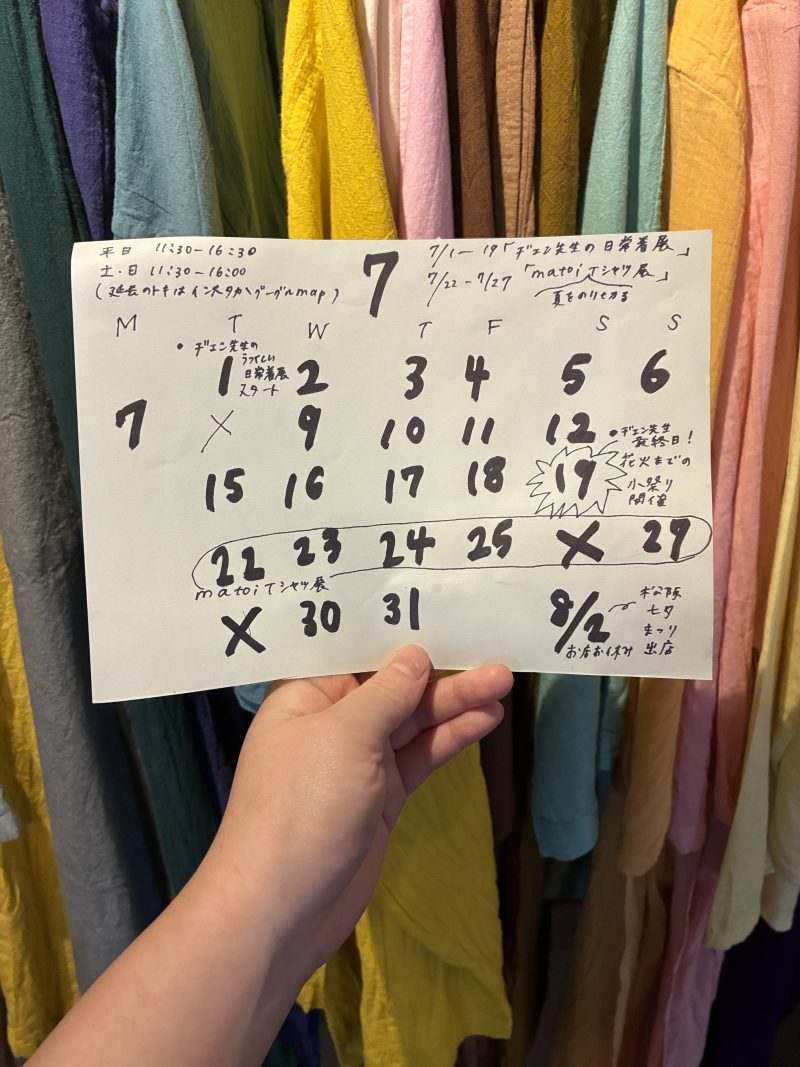 平日 11:30-16:30
土・日 11:30-16:00
(延長のトキはインスタか\グーグルmap)
7
7/1-19「ヂェン先生の日常着展」
7/22-7/27「matoiTシャツ展」
夏をのりきる
M T W T F S S
・ヂェン先生の
うつくしい
日常着展
スタート
1 2 3 4 5 6
7 X 9 10 11 12
・ヂェン先生
最終日!
15 16 17 18 19
花火までの
小祭り
開催
22 23 24 25 X 27
matoiTシャツ展
X 30 31 8/2
お店お休み
七夕
まつり
出店